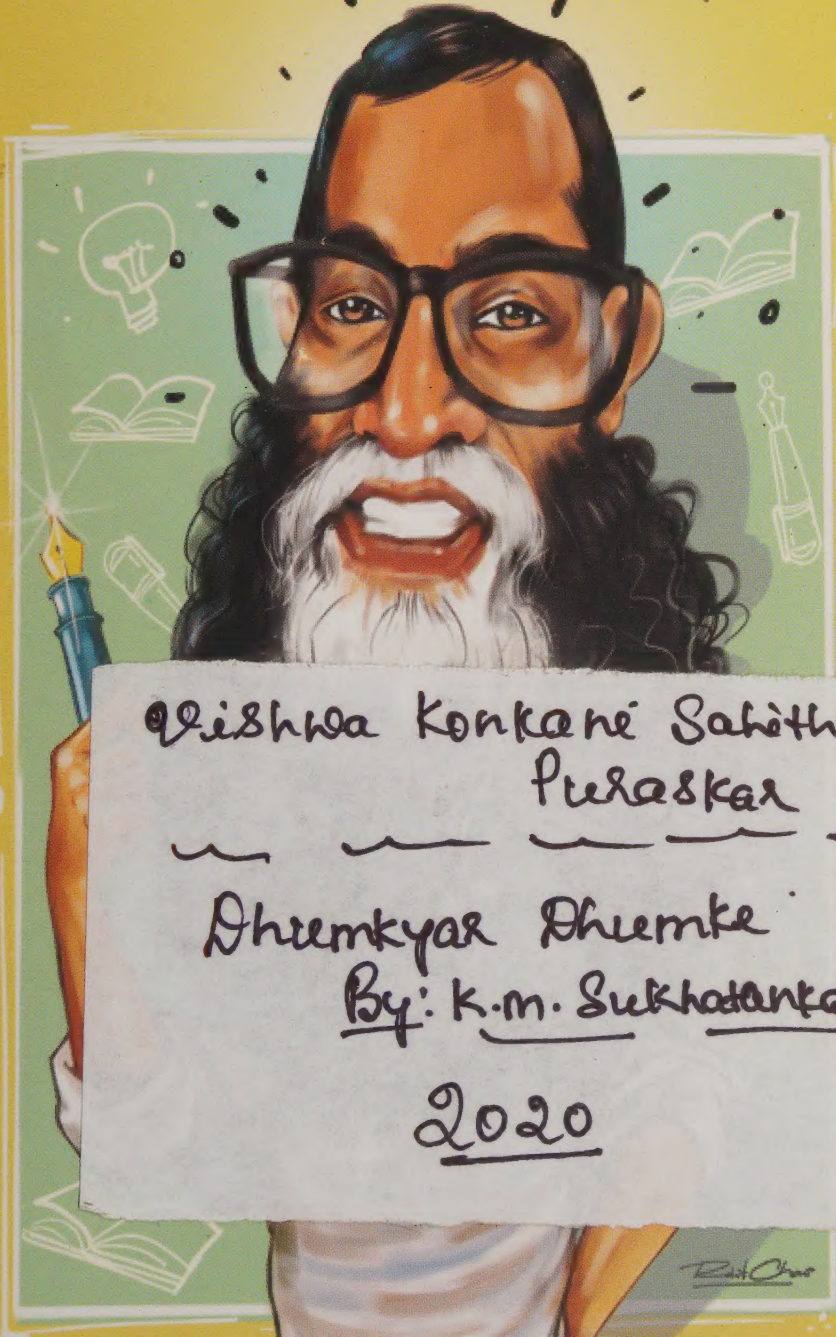 Vishwa Konkani Sahith
Puraskar
Dhumkyar Dhumke
By: K.M. Sukhatanka
2020